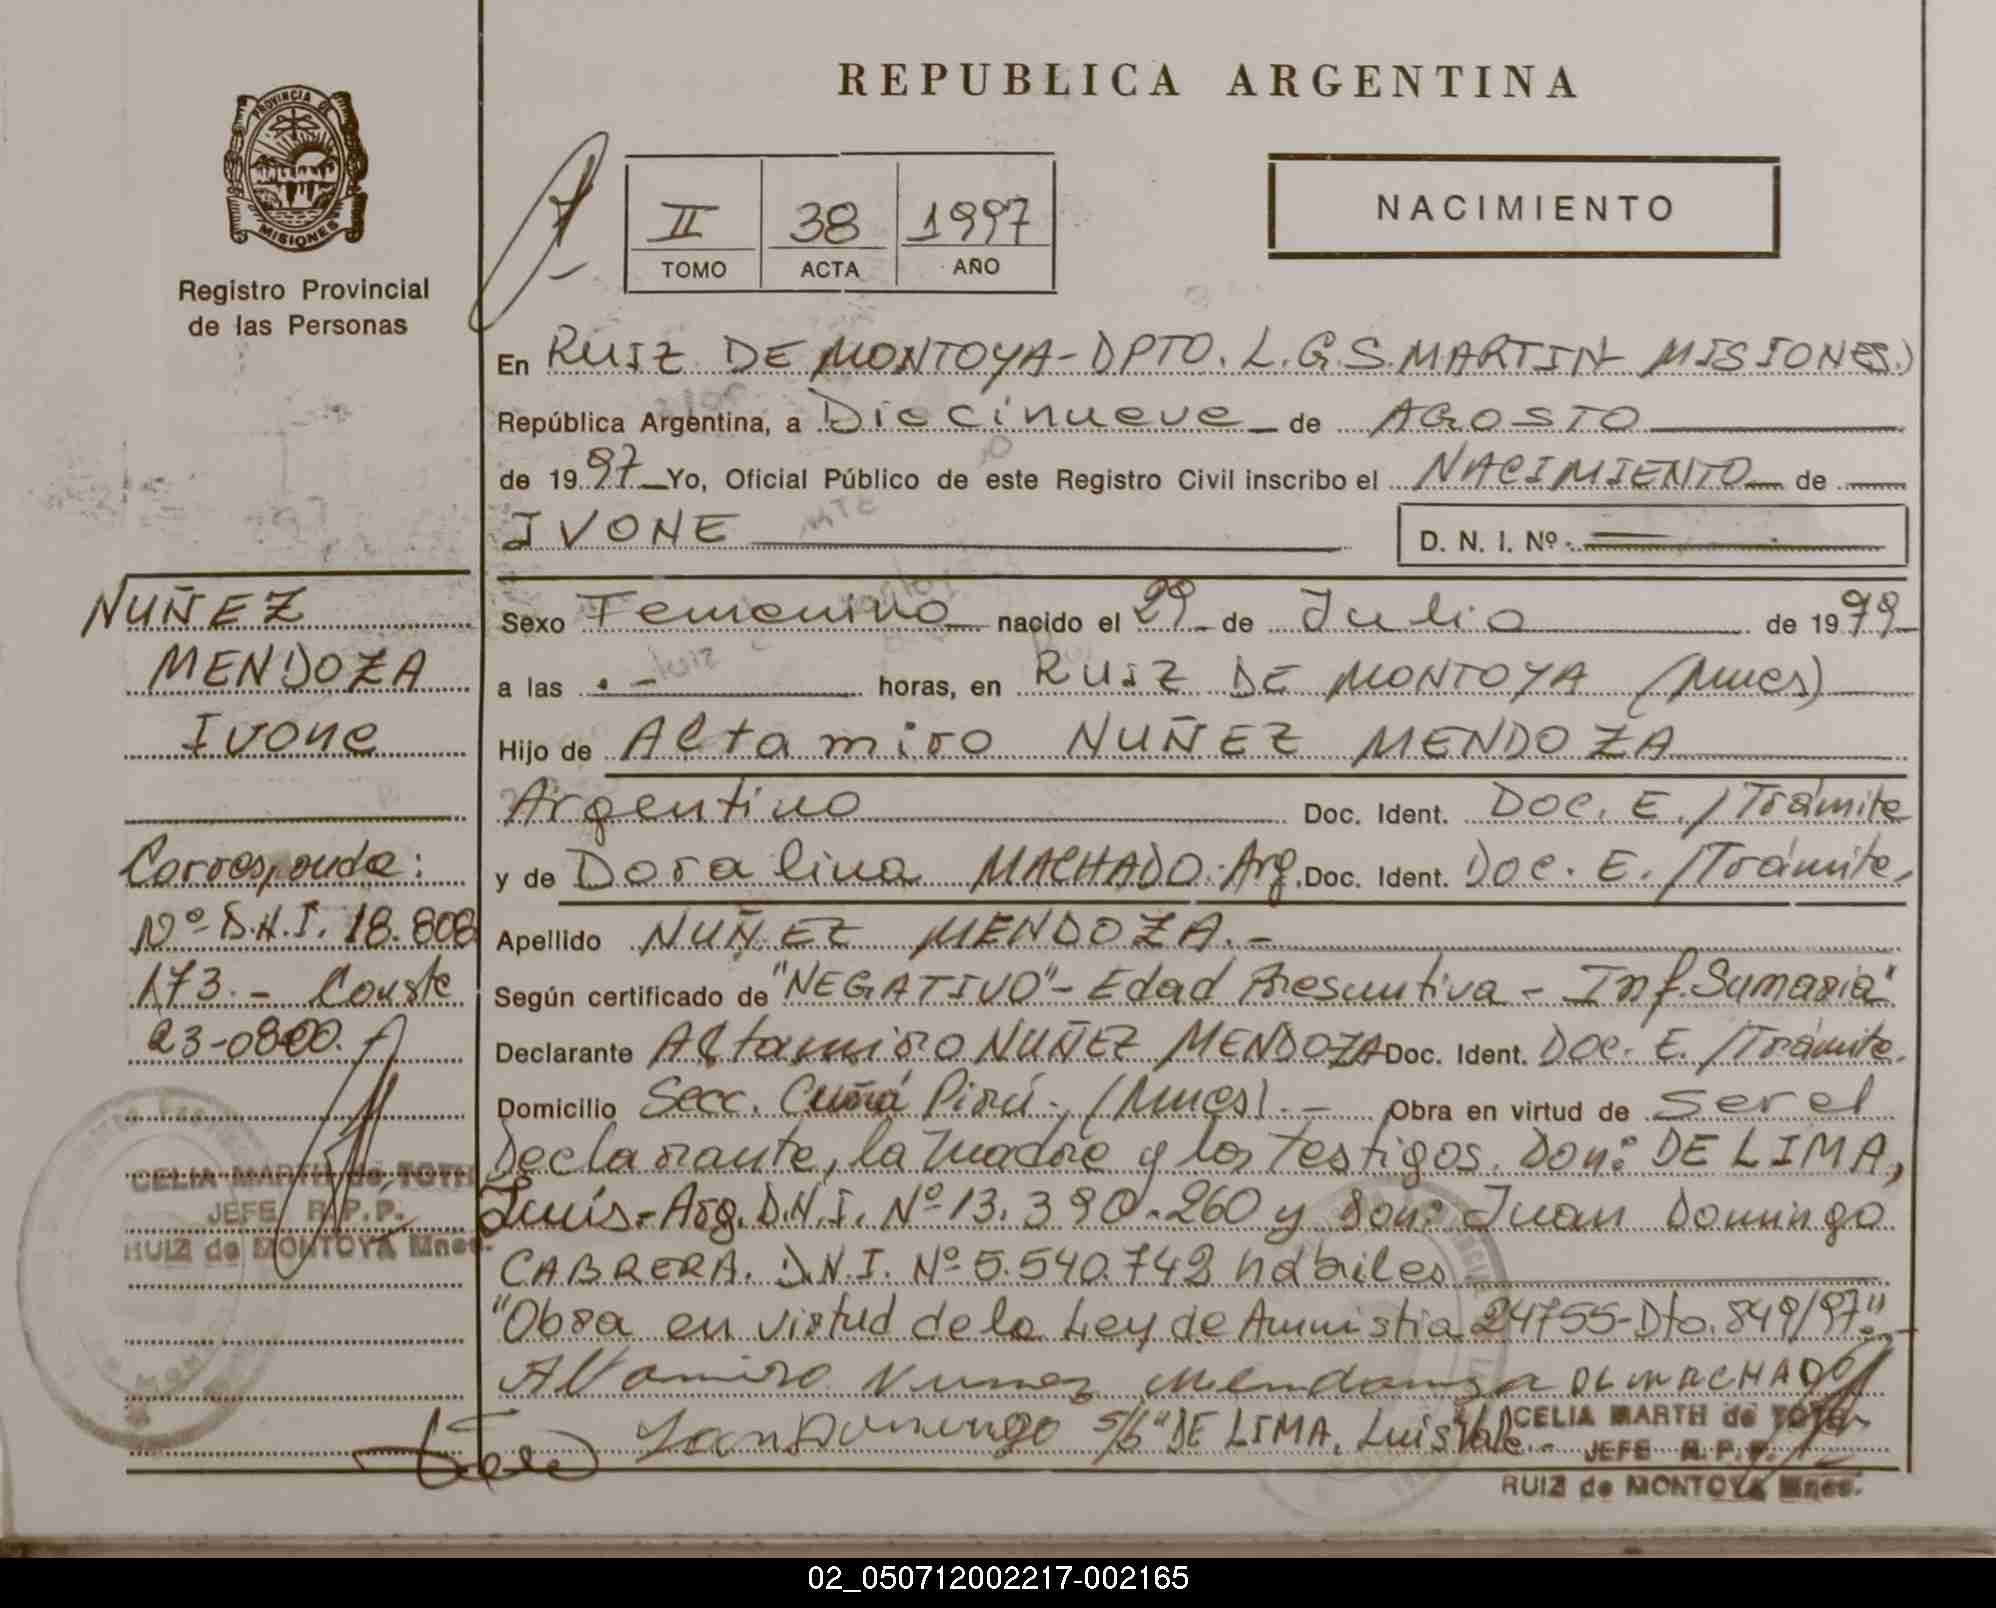 REPUBLICA ARGENTINA
PROVINCIA DE
MISIONES
Registro Provincial
de las Personas
II 38 1997
TOMO ACTA AÑO
NACIMIENTO
En RUIZ DE MONTOYA-DPTO. L.G.S.MARTIN MISIONES.)
República Argentina, a Diecinueve de AGOSTO
de 1997 Yo, Oficial Público de este Registro Civil inscribo el NACIMIENTO de
IVONE
D. N. I. Nº
NUÑEZ
MENDOZA
Ivone
Corresponde:
Nº D.N.I. 18.808
173.- Conste
CELIA MARTH de TOTH
JEFE R.P.P.
RUIZ de MONTOYA Mnes.
Sexo Femenino nacido el 29 de Julio de 1979
a las .- horas, en RUIZ DE MONTOYA (Mnes)
Hijo de Altamiro NUÑEZ MENDOZA
Argentino Doc. Ident. DOC. E./Trámite
y de Doralina MACHADO.Arg. Doc. Ident. Doc. E./Trámite.
Apellido NUÑEZ MENDOZA.-
Según certificado de "NEGATIVO"- Edad Presuntiva - Inf.Sumaria"
Declarante Altamiro NUÑEZ MENDOZA Doc. Ident. Doc. E./Trámite.
Domicilio Secc. Cuñá Pirú., (Mnes).- Obra en virtud de ser el
Declarante, la madre y los Testigos. Don: DE LIMA,
Luís.-Arg. D.N.I. Nº 13.390.260 y Don: Juan Domingo
CABRERA. D.N.I. Nº 5.540.742 hábiles
"Obra en virtud de la Ley de Amnistia 24755-Dto. 849/97".-
Altamiro Nunes Mendonza DL MACHADO
Domingo DE LIMA, Luis Vale-
CELIA MARTH de TOTH
JEFE R.P.P.
RUIZ de MONTOYA Mnes.
02_050712002217-002165